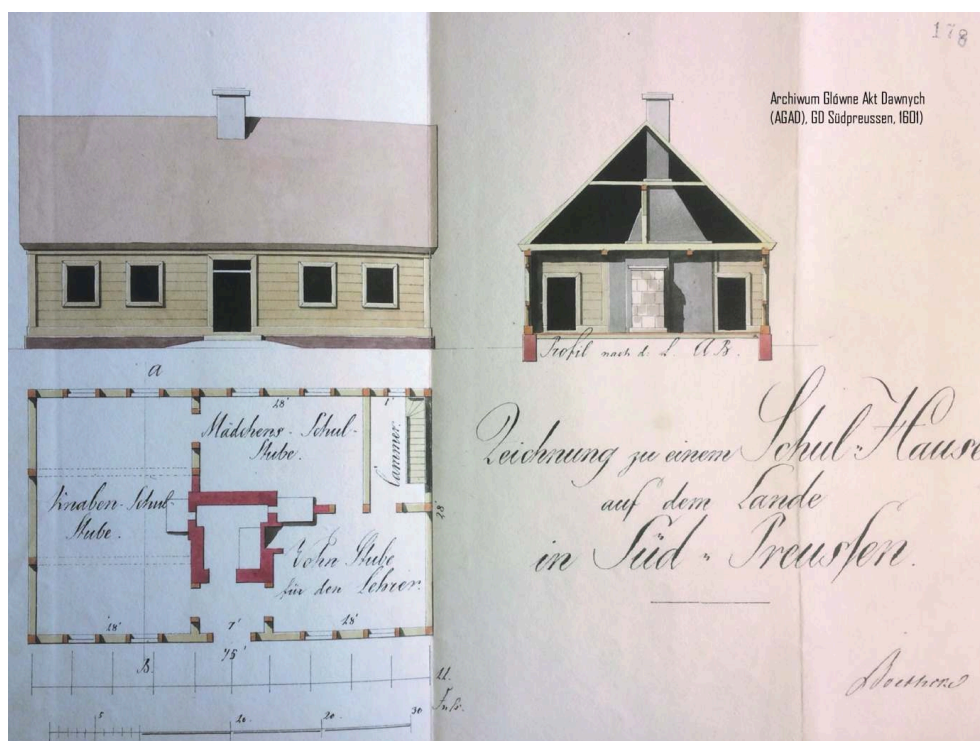 178
Archiwum Główne Akt Dawnych
(AGAD), GD Südpreussen, 1601)
Profil nach d. L. A B.
A
28'
1'
Mädchens-Schul-
Stube.
Cammer.
Knaben-Schul-
Stube.
28'
Wohn Stube
für den Lehrer.
18'
7'
18'
B.
45'
5
10.
20.
30
Fuß.
Zeichnung zu einem Schul-Hause
auf dem Lande
in Süd-Preussen.